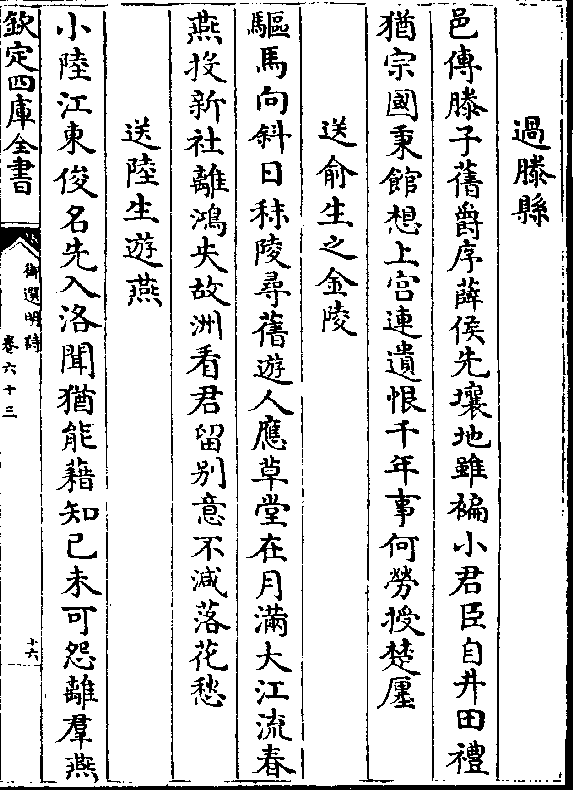 過滕縣
邑傳滕子舊爵序薛侯先壤地雖褊小君臣自井田禮
猶宗國秉館想上宫連遺恨千年事何勞授楚廛
送俞生之金陵
驅馬向斜日秣陵尋舊遊人應草堂在月滿大江流春
燕投新社離鴻失故洲看君留別意不減落花愁
送陸生遊燕
小陸江東俊名先入洛聞猶能藉知己未可怨離羣燕
欽定四庫全書
御選明詩
卷六十三
十六